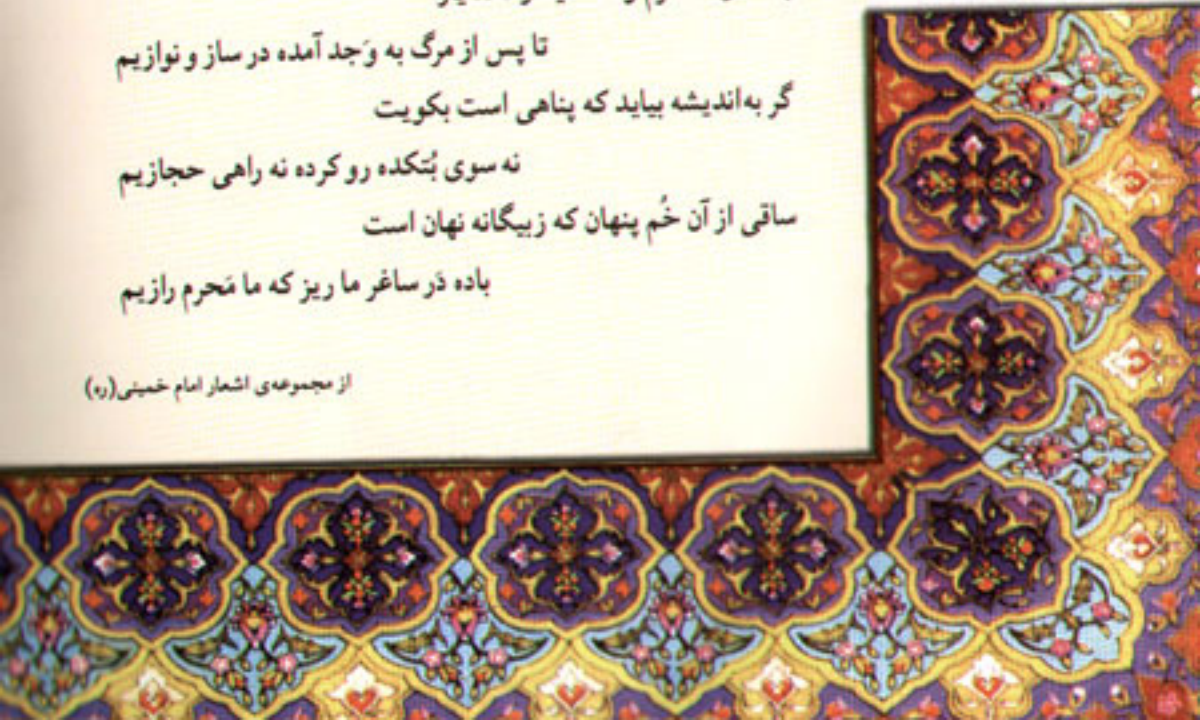 تا پس از مرگ به وَجد آمده در ساز و نوازیم
گر به‌اندیشه بیاید که پناهی است بکویت
نه سوی بُتکده رو کرده نه راهی حجازیم
ساقی از آن خُم پنهان که زبیگانه نهان است
باده دَر ساغر ما ریز که ما مَحرم رازیم
از مجموعه‌ی اشعار امام خمینی(ره)